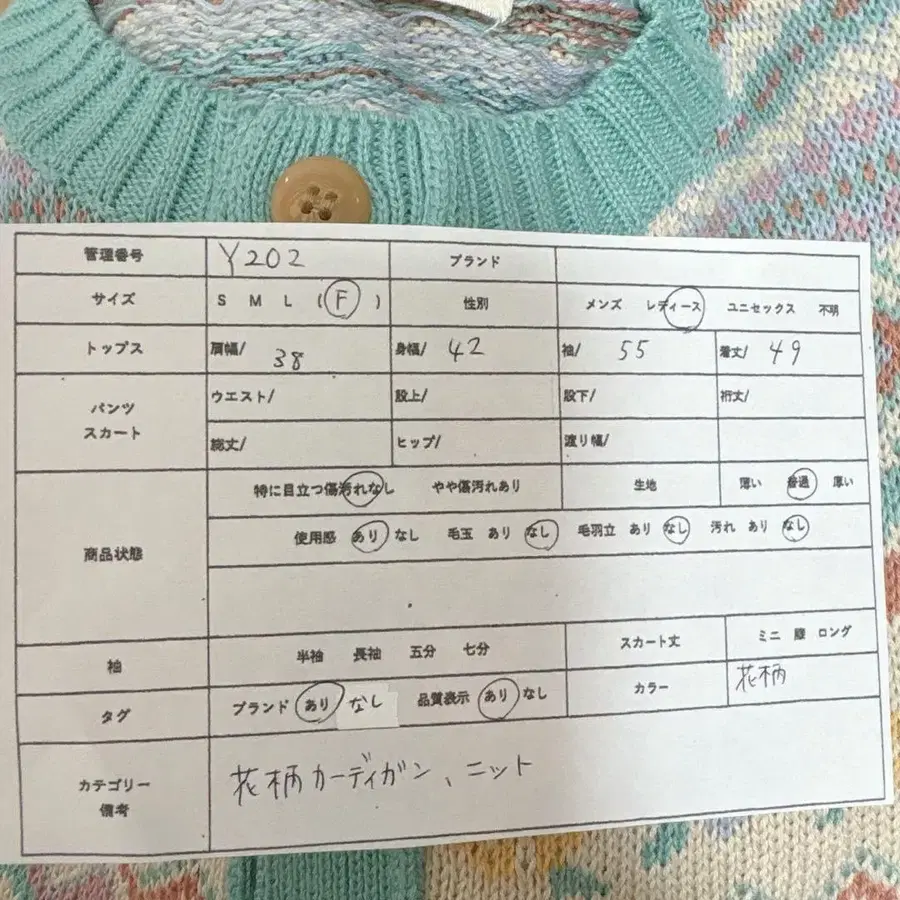 管理番号 Y202 ブランド
サイズ S M L ( F ) 性別 メンズ レディース ユニセックス 不明
トップス 肩幅/ 38 身幅/ 42 袖/ 55 着丈/ 49
パンツ
スカート
ウエスト/ 股上/ 股下/ 裄丈/
総丈/ ヒップ/ 渡り幅/
商品状態
特に目立つ傷汚れなし やや傷汚れあり 生地 薄い 普通 厚い
使用感 あり なし 毛玉 あり なし 毛羽立 あり なし 汚れ あり なし
袖 半袖 長袖 五分 七分 スカート丈 ミニ 膝 ロング
タグ ブランド あり なし 品質表示 あり なし カラー 花柄
カテゴリー
備考
花柄カーディガン、ニット